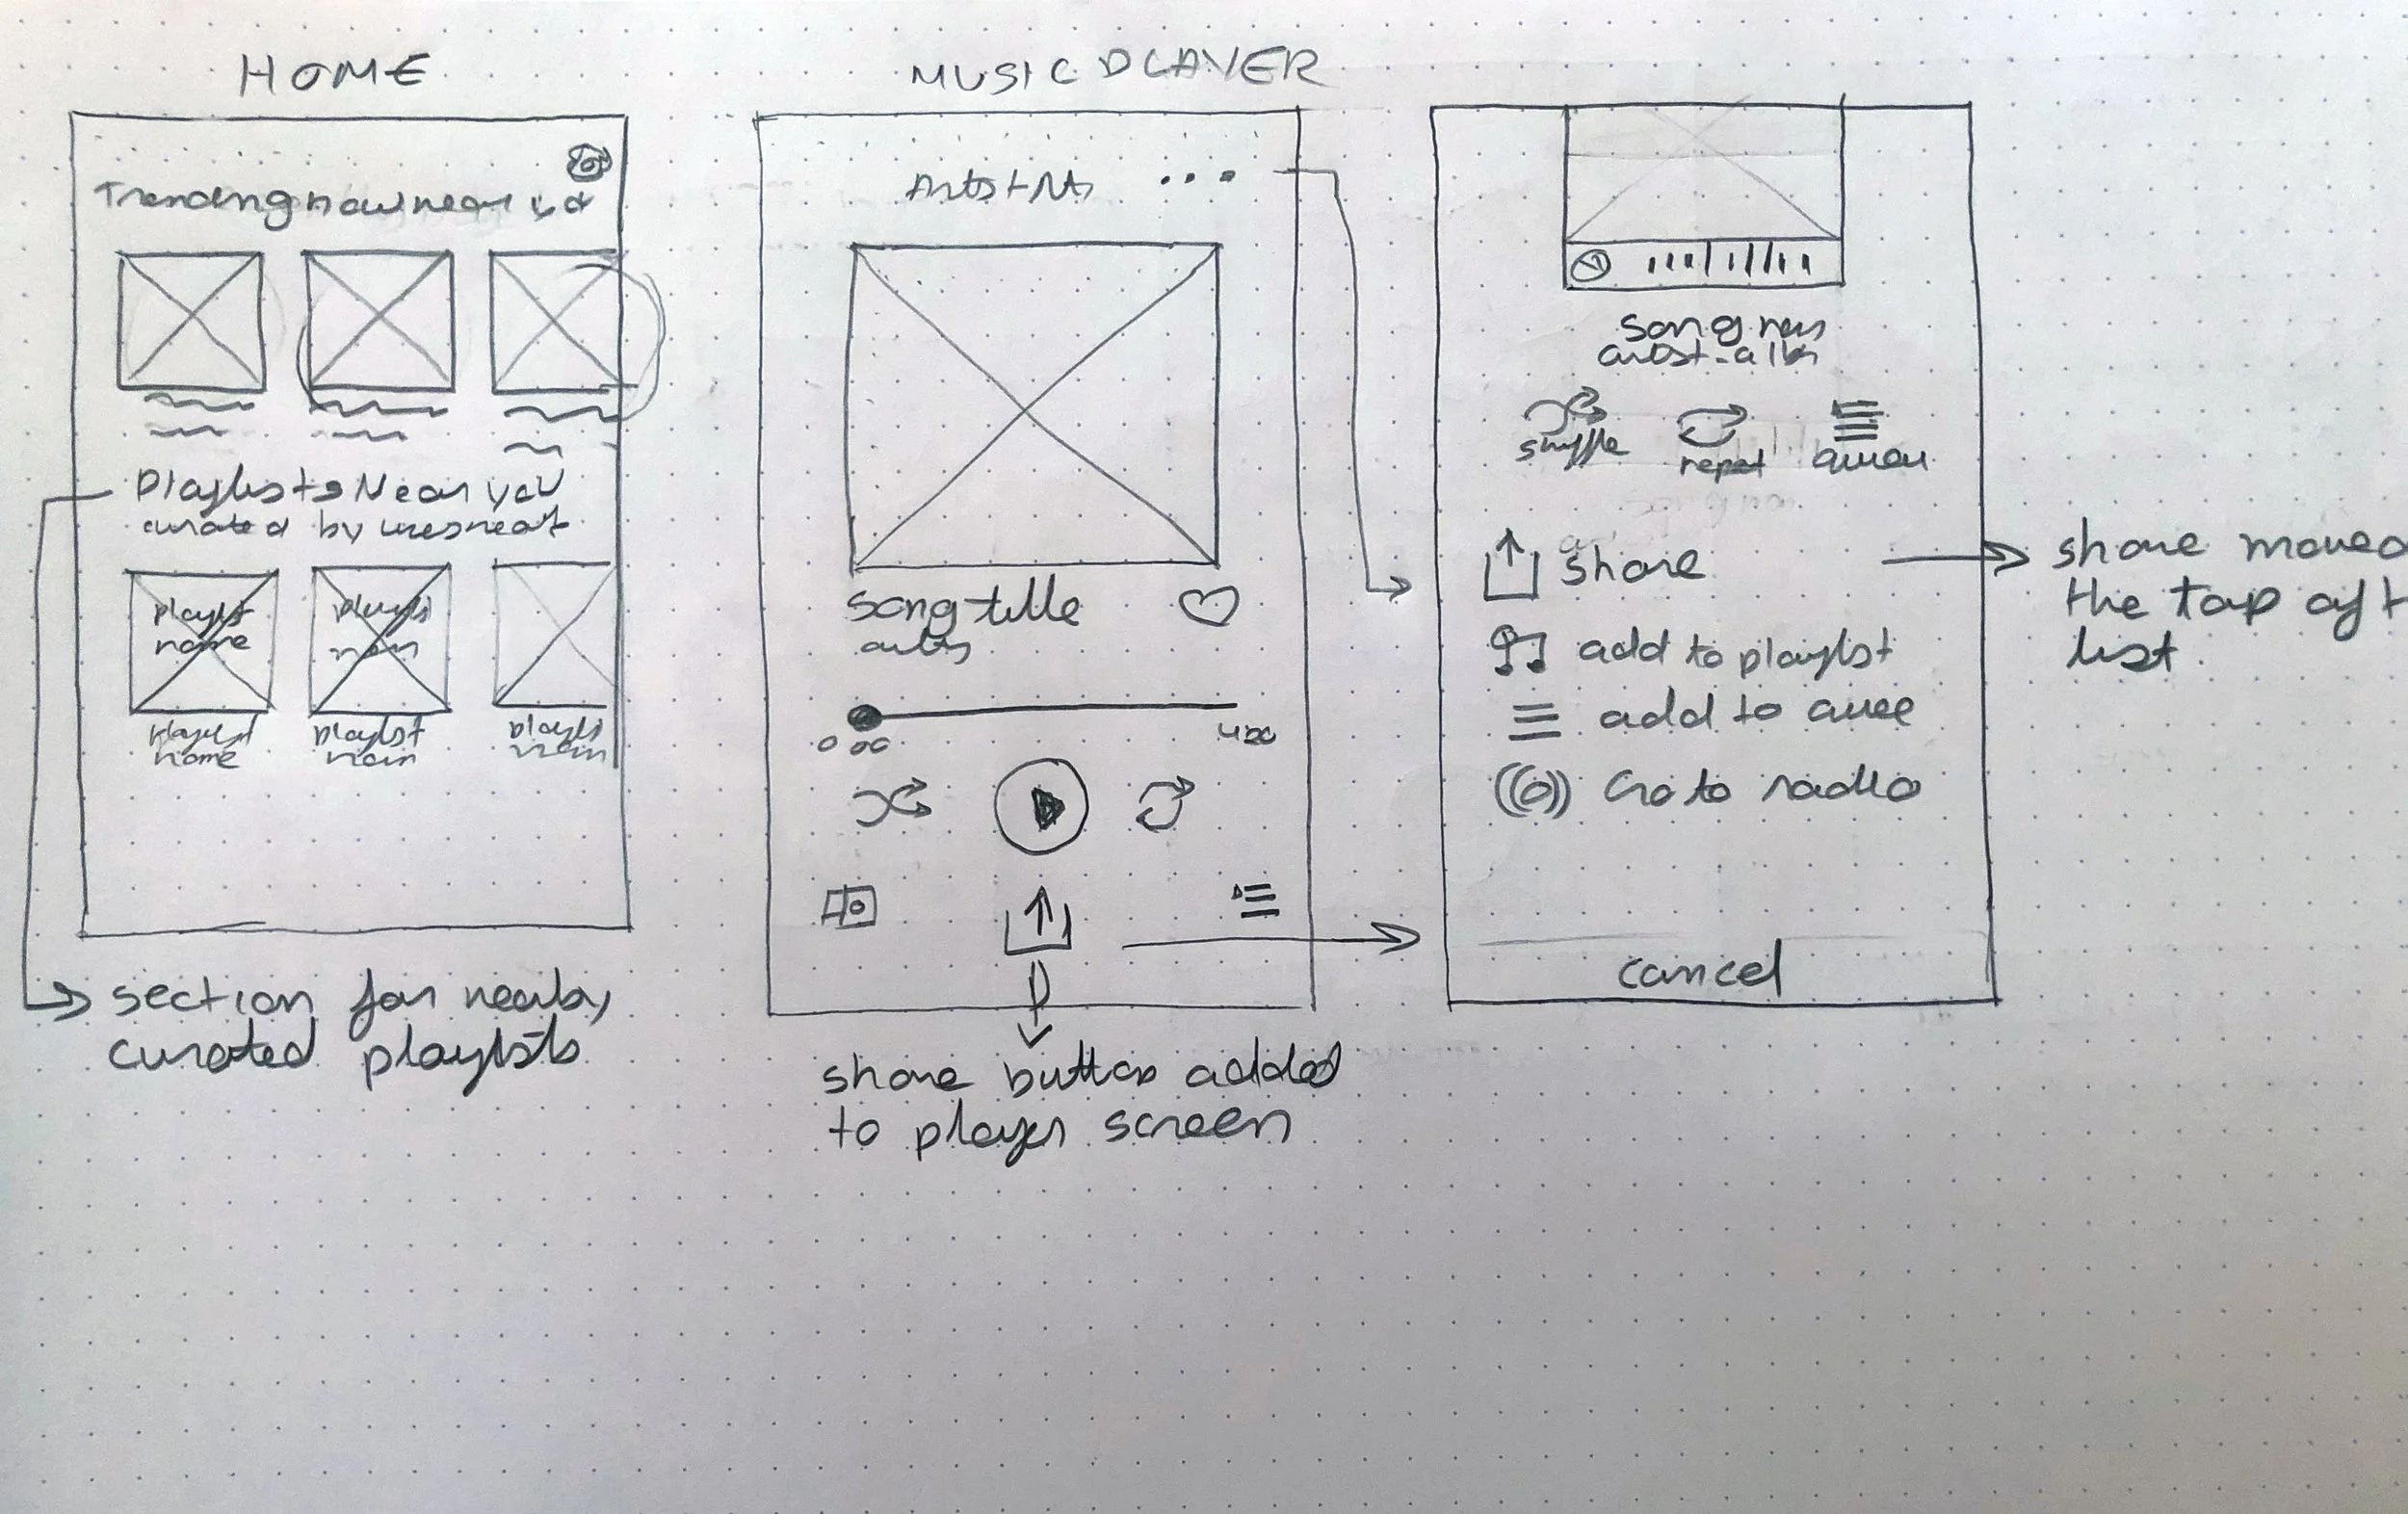 HOME
Trending now near yo
Playlists Near you
curated by
playlist
name
playlist
name
playlist
playlist
section for nearby
curated playlists
MUSIC PLAYER
song title
0 00
4 20
share button added
to player screen
song
artist - alb
shuffle
repeat
share
add to playlist
add to
Go to radio
cancel
share moved
the top of t
list.